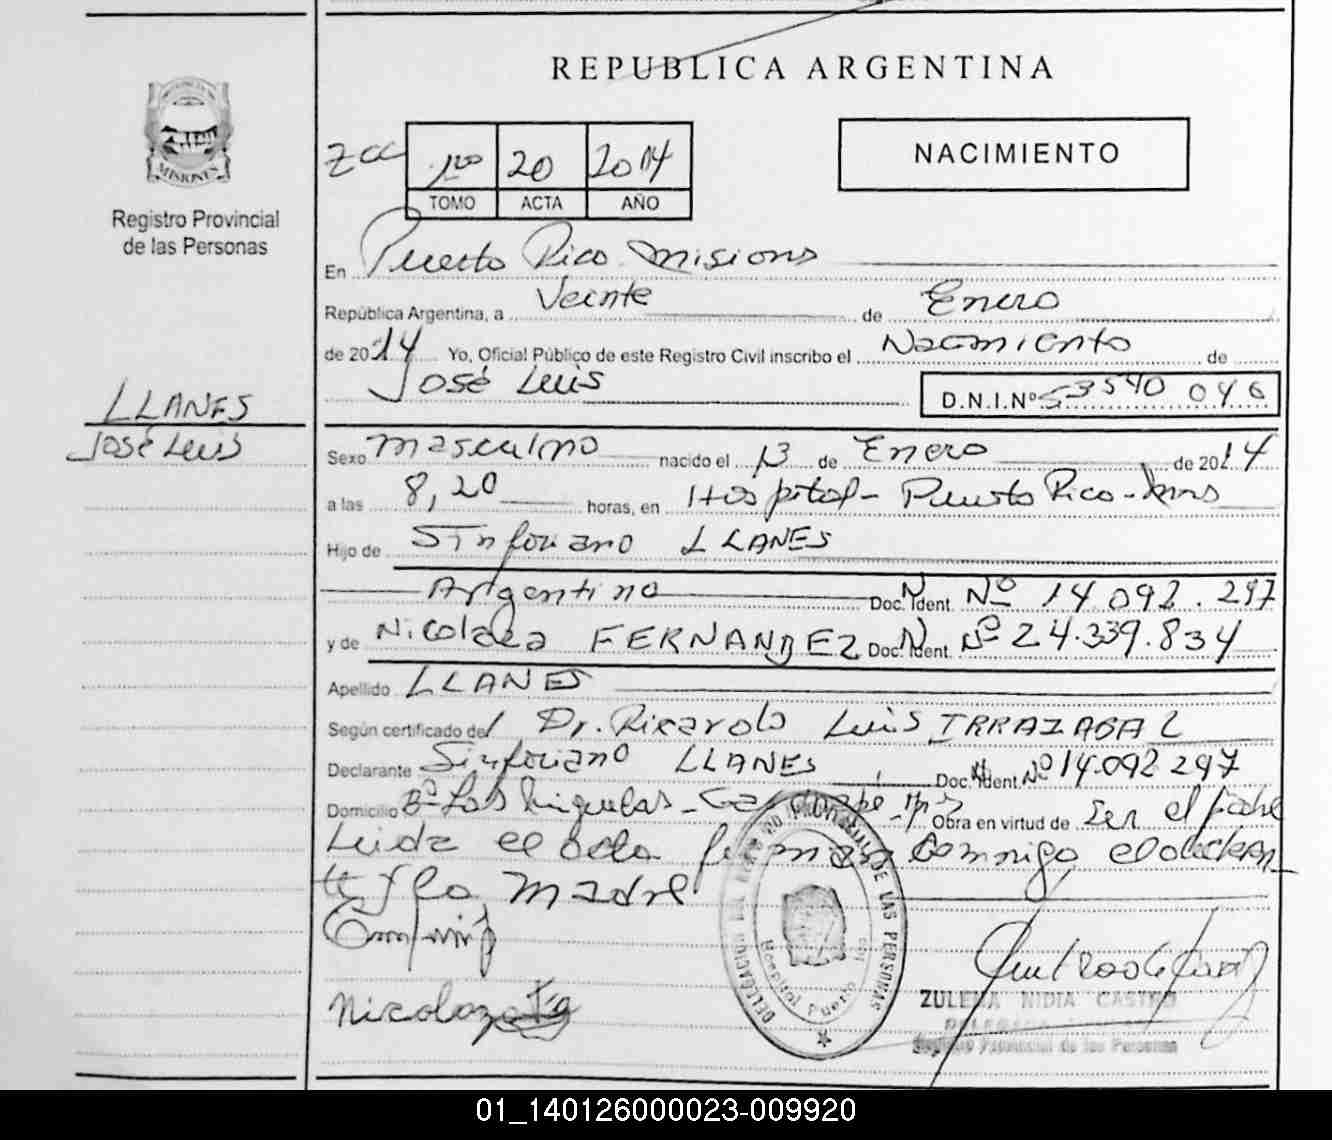 REPUBLICA ARGENTINA
MISIONES
Registro Provincial
de las Personas
1ro 20 2014
TOMO ACTA AÑO
NACIMIENTO
En Puerto Rico Misions
República Argentina, a Veinte de Enero
de 2014 Yo, Oficial Público de este Registro Civil inscribo el Nacimiento de
José Luis
D.N.I.Nº 53540 046
LLANES
José Luis
Sexo masculino nacido el 13 de Enero de 2014
a las 8,20 horas, en Hospital - Puerto Rico - Mns
Hijo de Sinforiano LLANES
Argentino Doc. Ident. Nº 14.092.297
y de Nicolaza FERNANDEZ Doc. Ident. Nº 24.339.834
Apellido LLANES
Según certificado del Dr. Ricardo Luis IRRAZABAL
Declarante Sinforiano LLANES Doc. Ident. Nº 14.092 297
Domicilio Bº Las - Obra en virtud de Ser el padre
Leida el acta firman conmigo el declaran_
te y la madre
DELEGACION DEL REGISTRO PROVINCIAL DE LAS PERSONAS
Hospital Puerto Rico
Nicolaza
ZULEMA NIDIA CASTRO
DELEGADA
Registro Provincial de las Personas
01_140126000023-009920